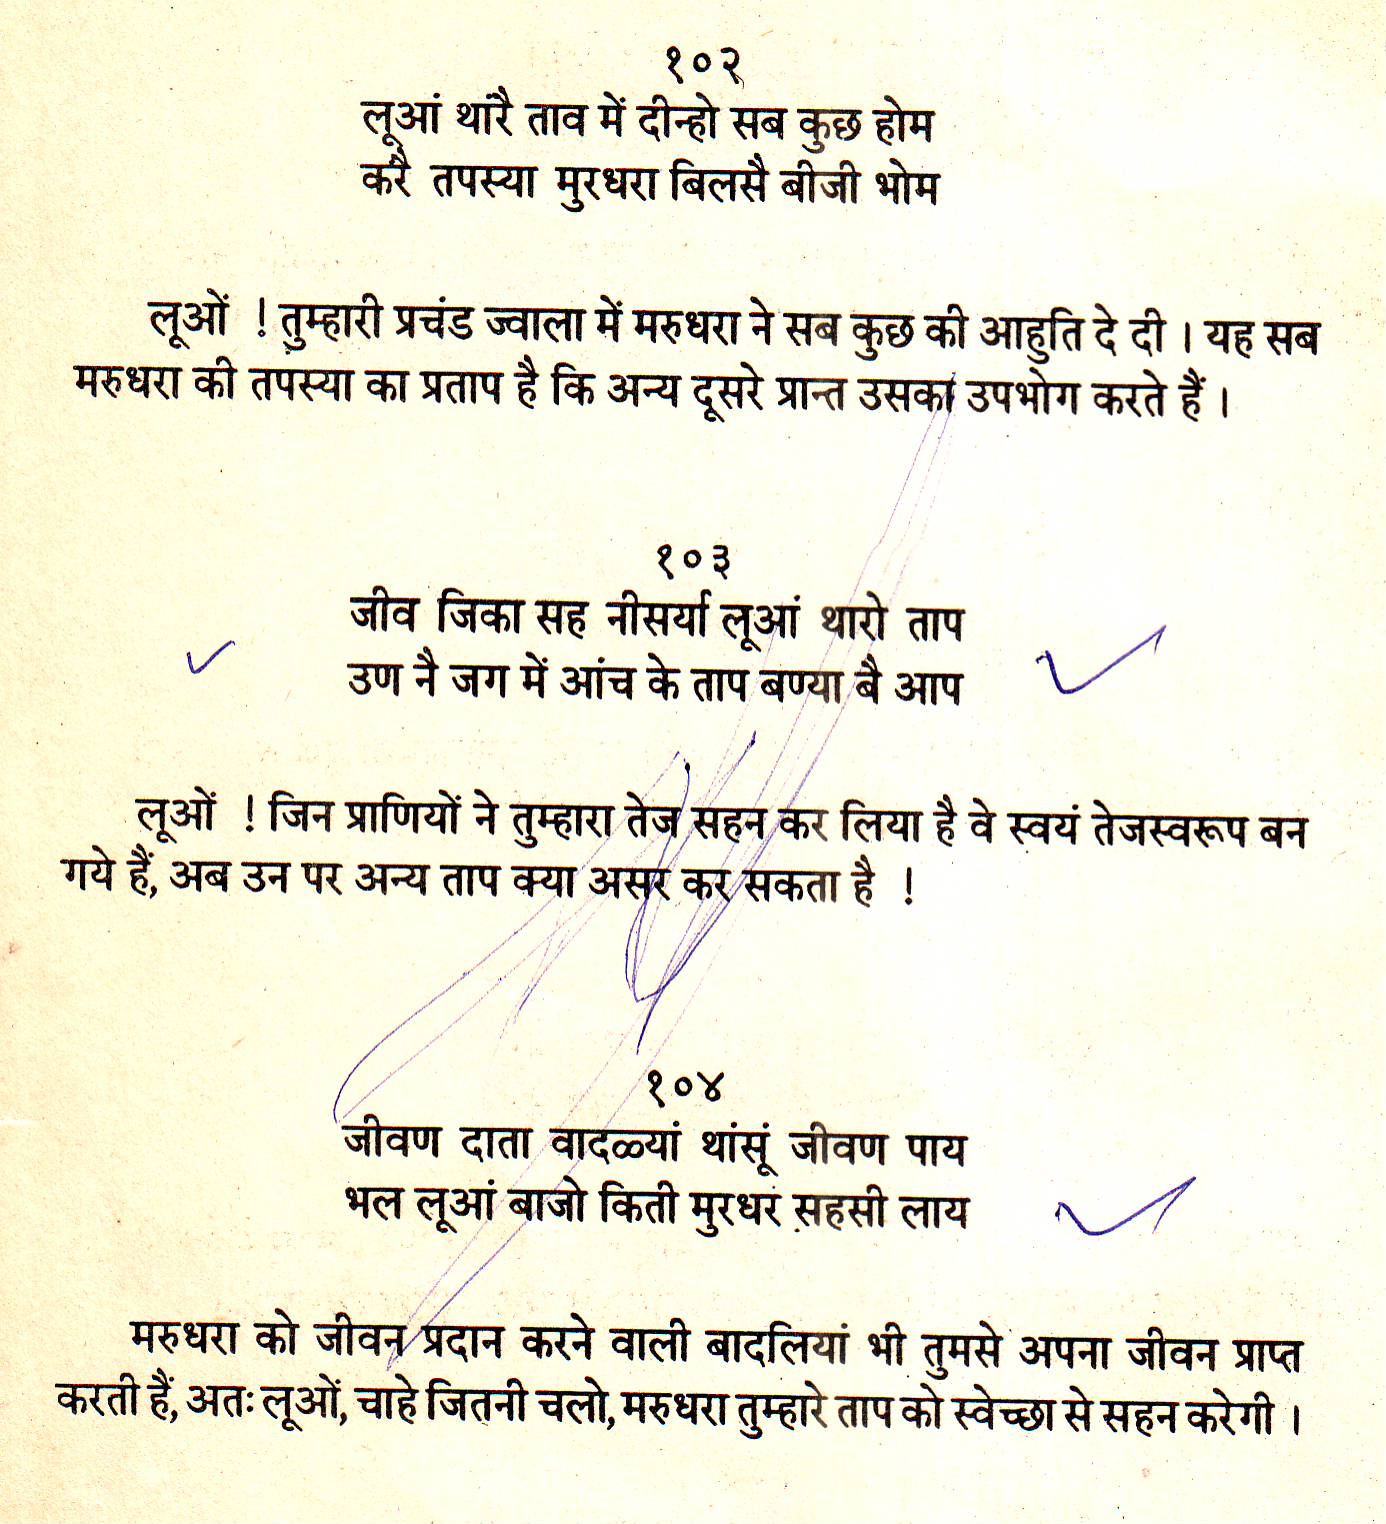 १०२
लूआं थांरै ताव में दीन्हो सब कुछ होम
करै तपस्या मुरधरा बिलसै बीजी भोम
लूओं ! तुम्हारी प्रचंड ज्वाला में मरुधरा ने सब कुछ की आहुति दे दी । यह सब
मरुधरा की तपस्या का प्रताप है कि अन्य दूसरे प्रान्त उसका उपभोग करते हैं ।
१०३
जीव जिका सह नीसर्या लूआं थारो ताप
उण नै जग में आंच के ताप बण्या बै आप
लूओं ! जिन प्राणियों ने तुम्हारा तेज सहन कर लिया है वे स्वयं तेजस्वरूप बन
गये हैं, अब उन पर अन्य ताप क्या असर कर सकता है !
१०४
जीवण दाता वादळ्यां थांसूं जीवण पाय
भल लूआं बाजो किती मुरधर सहसी लाय
मरुधरा को जीवन प्रदान करने वाली बादलियां भी तुमसे अपना जीवन प्राप्त
करती हैं, अतः लूओं, चाहे जितनी चलो, मरुधरा तुम्हारे ताप को स्वेच्छा से सहन करेगी ।